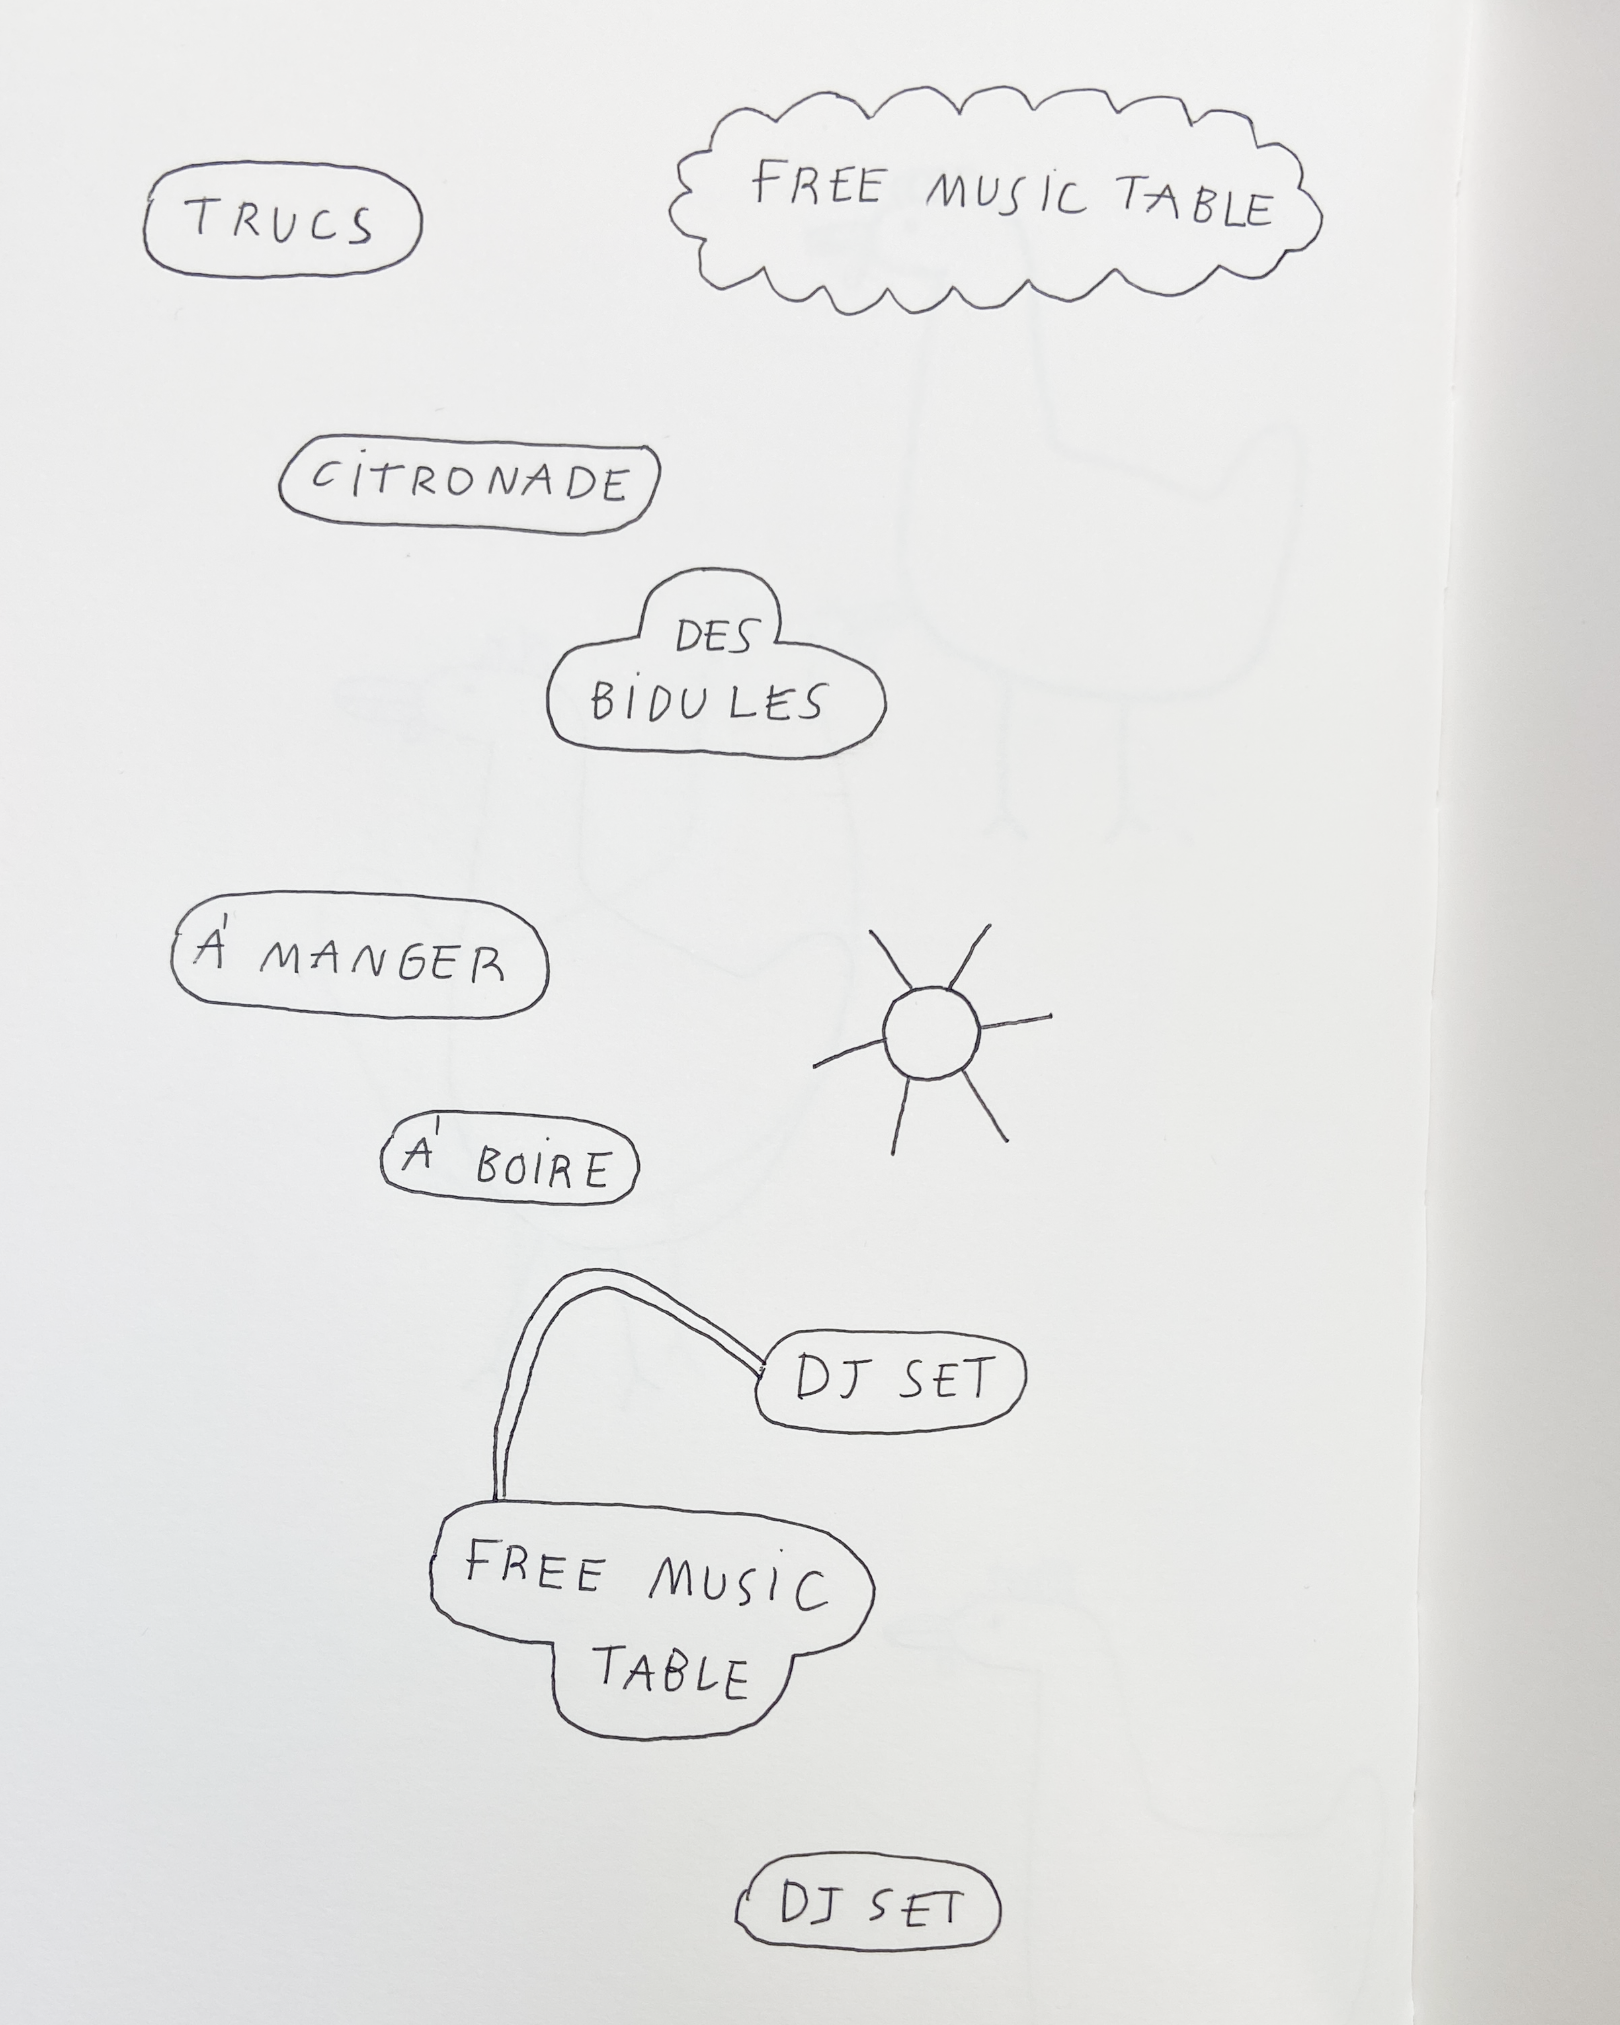 TRUCS
FREE MUSIC TABLE
CITRONADE
DES
BIDULES
À MANGER
À BOIRE
DJ SET
FREE MUSIC
TABLE
DJ SET